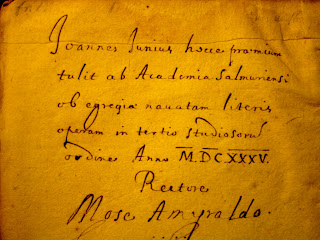 Joannes Junius hocce præmium
tulit ab Academia Salmuriensi
ob egregiã navatam literis
operam in tertio studiosorũ
ordine Anno M.DCXXXV.
Rectore
Mose Amyraldo.